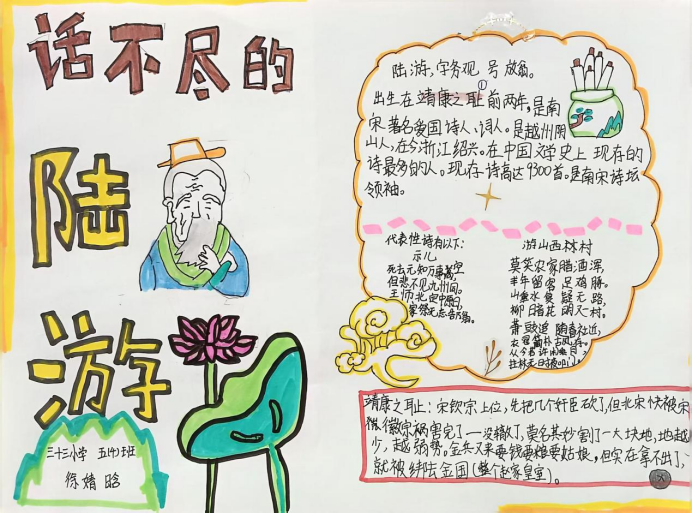 话不尽的
陆
游
三十三小学 五(4)班
徐婧晗
陆游,字务观 号放翁。
①
出生在靖康之耻前两年,是南
宋著名爱国诗人、词人。是越州阴
山人,在今浙江绍兴。在中国文学史上现存的
诗最多的人。现存诗高达9300首。是南宋诗坛
领袖。
代表性诗有以下:
示儿
死去元知万事空
但悲不见九州同。
王师北定中原日,
家祭无忘告乃翁。
游山西林村
莫笑农家腊酒浑,
丰年留客足鸡豚。
山重水复疑无路,
柳暗花明又一村。
萧鼓追随春社近,
衣冠简朴古风存。
从今若许闲乘月
拄杖无日夜叩门
靖康之耻止:宋钦宗上位,先把几个奸臣砍了,但北宋快被宋
徽宗祸害完了一没撤了,莫名其妙割了一大块地,地越
少,越弱势。金兵又来要钱要粮要姑娘,但实在拿不出了,
就被绑去金国(整个赵家皇室)。